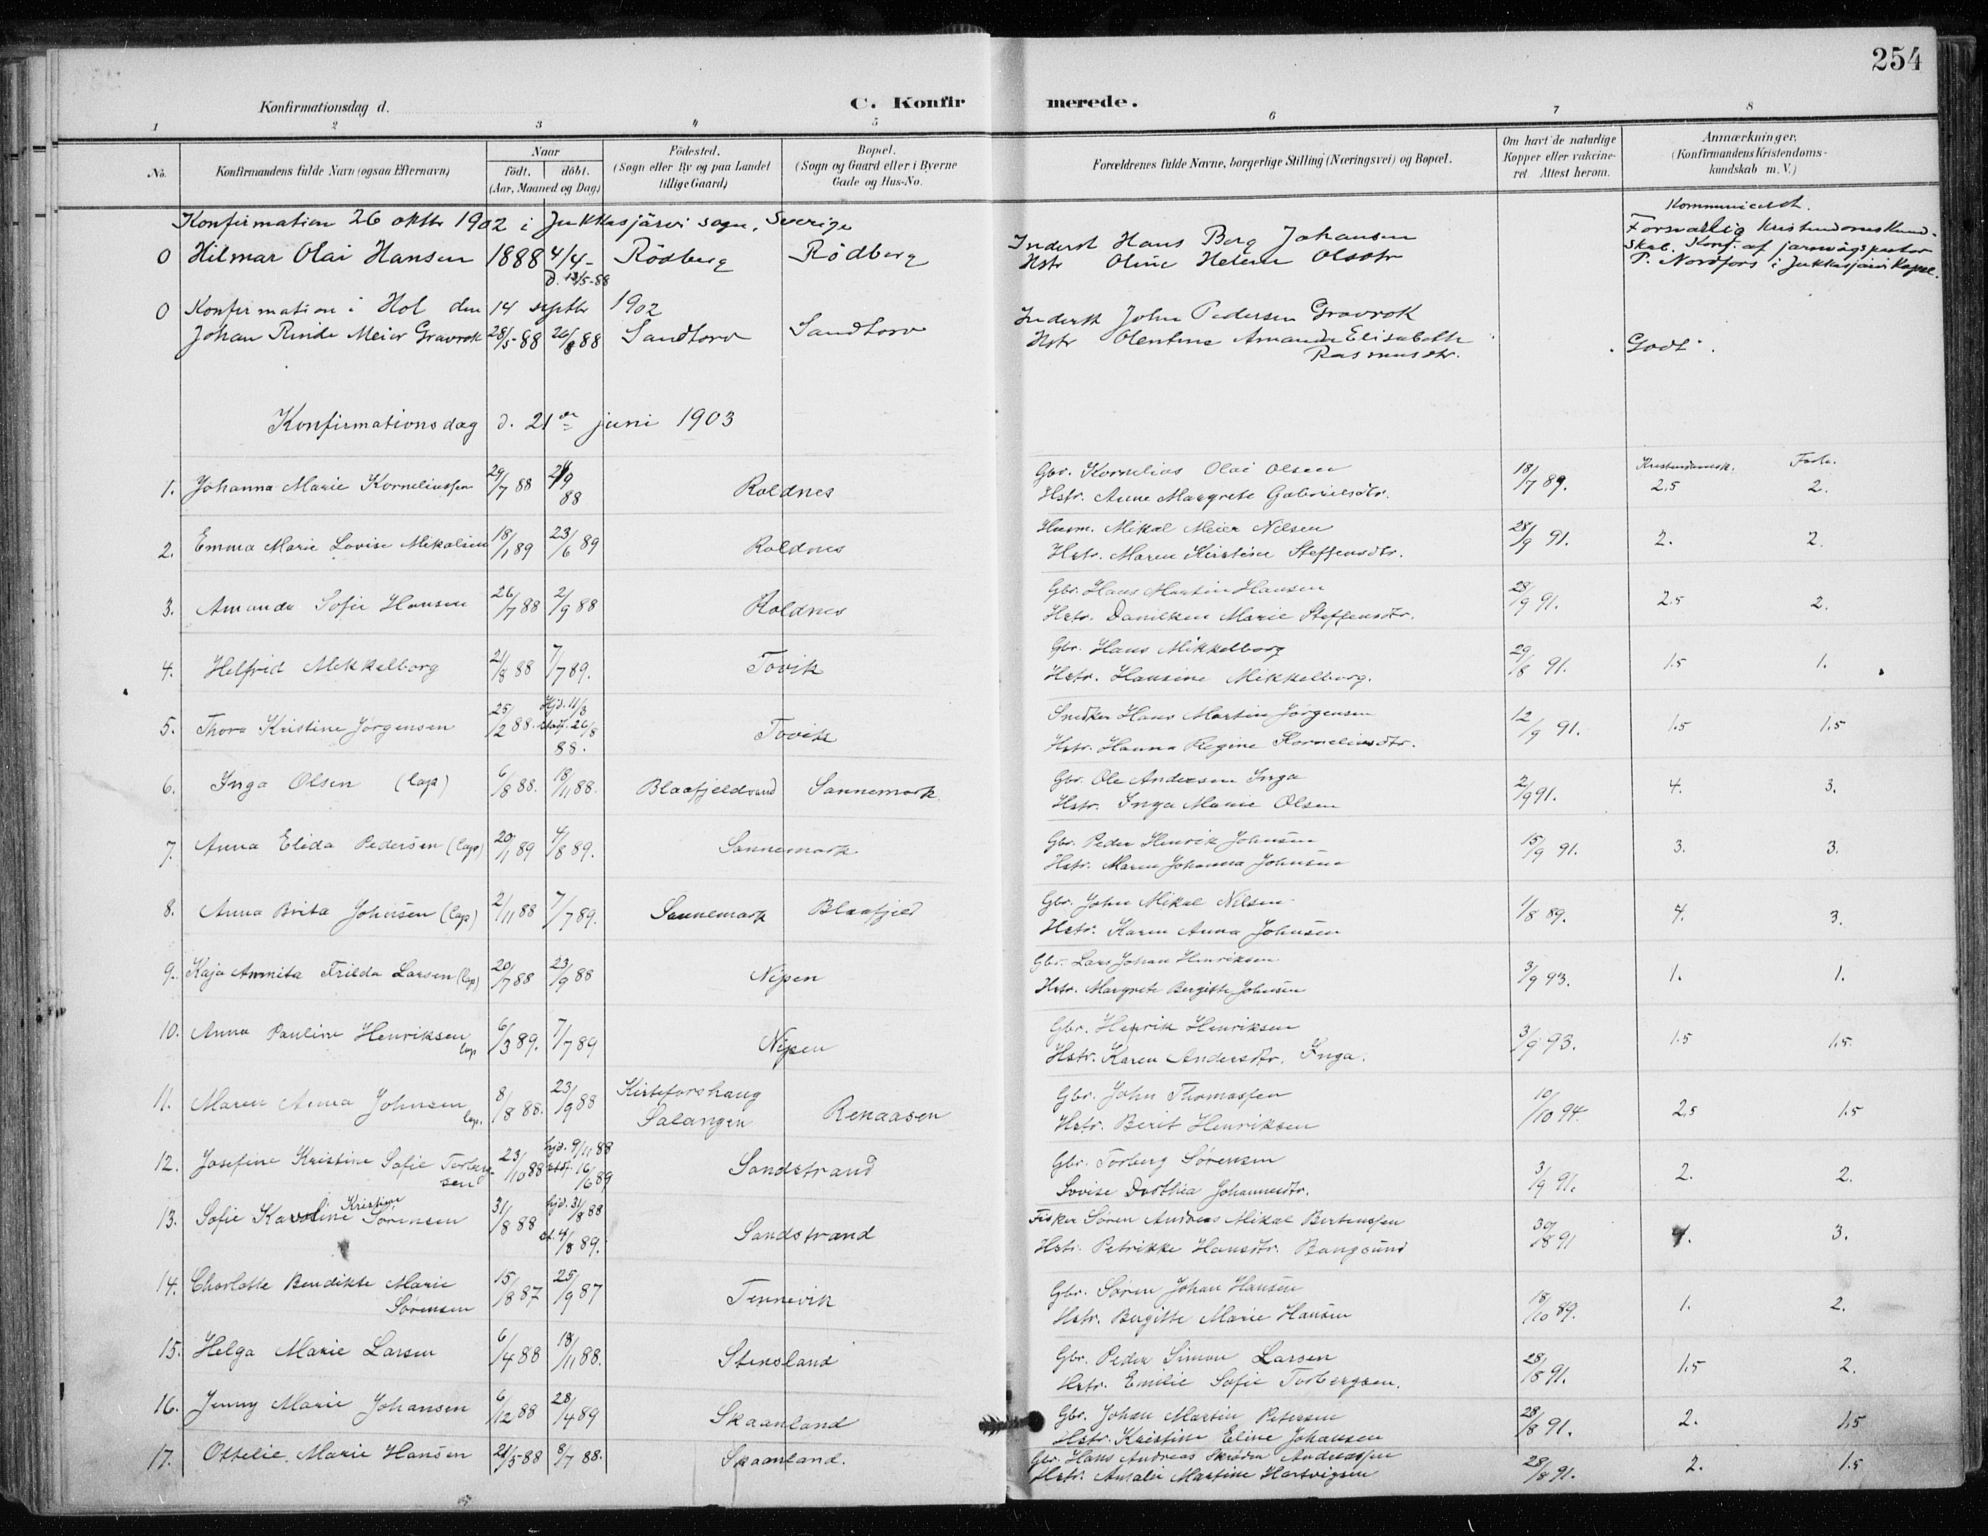 254
Konfirmationsdag d. C. Konfir merede.
1 2 3 4 5 6 7 8
No. Konfirmandens fulde Navn (ogsaa Efternavn) Naar födt. döbt. (Aar, Maaned og Dag) Födested. (Sogn eller By og paa Landet tillige Gaard) Bopæl. (Sogn og Gaard eller i Byerne Gade og Hus-No. Forældrenes fulde Navne, borgerlige Stilling (Næringsvei) og Bopæl. Om havt de naturlige Kopper eller vakcineret. Attest herom. Anmærkninger. (Konfirmandens Kristendomskundskab m. V.)
Konfirmation 26 oktbr 1902 i Jukkasjärvi sogn, Sverige
0 Hilmar Olai Hansen 1888 4/4- D. 13/5-88 Rödberg Rödberg Inderst Hans Berg Johansen Hstr Oline Helene Olsdtr Kommuniceret. Forsvarlig Kristendomskundskab. Konf. af jarnvägspastor P. Nordfors i Jukkasjärvi Kapel.
0 Konfirmation i Hol den 14 septbr 1902
Johan Rinde Meier Gravrok 28/5-88 26/8 88 Sandtorv Sandtorv Inderst John Pedersen Gravrok Hstr Olentine Amanda Elisabeth Rasmusdtr. Godt.
Konfirmationsdag d. 21de juni 1903
Kristendomsk. Forh.
1. Johanna Marie Korneliussen 29/7 88 /9 88 Roldnes Gbr. Kornelius Olai Olsen Hstr. Anne Margrete Gabrielsdtr. 18/7 89. 2.5 2.
2. Emma Marie Lovise Mikalsen 18/1 89 23/6 89 Roldnes Husm. Mikal Meier Nilsen Hstr. Maren Kirstine Steffensdtr. 28/9 91. 2. 2.
3. Amanda Sofie Hansen 26/7 88 2/9 88 Roldnes Gbr. Hans Martin Hansen Hstr. Danilken Marie Steffensdtr. 28/9 91. 2.5 2.
4. Helfrid Mikkelborg 21/8 88 7/7 89. Tovik Gbr. Hans Mikkelborg Hstr. Hansine Mikkelborg. 29/8 91. 1.5 1.
5. Thora Kristine Jørgensen 25/2 88. Hjd. 11/3 stadf. 26/8 88. Tovik Snedker Hans Martin Jørgensen Hstr. Hanna Regine Korneliusdtr. 12/9 91. 1.5 1.5
6. Inga Olsen (lap) 6/8 88. 18/11 88. Blaafjeldvand Sannemark. Gbr. Ole Andersen Inga Hstr. Inga Marie Olsen 2/9 91. 4. 3.
7. Anna Elida Pedersen (lap) 20/1 89 4/8 89. Sannemark Gbr. Peder Henrik Johnsen Hstr. Maren Johanna Johnsen 15/9 91. 3. 3.
8. Anna Brita Johnsen (lap) 2/11 88 7/7 89. Sannemark Blaafjeld Gbr. John Mikal Nilsen Hstr. Karen Anna Johnsen 1/8 89. 4. 3.
9. Kaja Annita Frilda Larsen (lap) 20/7 88 23/9 88 Nipen Gbr. Lars Johan Henriksen Hstr. Margrete Bergitte Johnsen 3/9 93. 1. 1.
10. Anna Pauline Henriksen lap 6/3 89. 7/7 89 Nipen Gbr. Henrik Henriksen Hstr. Karen Andersdtr. Inga. 3/9 93. 1.5 1.5.
11. Maren Anna Johnsen lap. 8/8 88. 23/9 88 Kirteforshaug Salangen Renaasen Gbr. John Thomassen Hstr. Berit Henriksen 10/10 94. 2.5 1.5
12. Josefine Kristine Sofie Torbergsen 23/10 88 hjd. 9/11 88 stdf. 16/6 89 Sandstrand Gbr. Torberg Sørensen Lovise Dorthea Johannesdtr. 3/9 91. 2. 2.
13. Sofie Karoline Kristine Sørensen 31/8 88 hjd. 31/8 88 st. 4/8 89. Sandstrand Fisker Søren Andreas Mikal Berteussen Hstr. Petrikke Hansdtr. Bangsund 30/8 91 4. 3.
14. Charlotte Bendikte Marie Sørensen 15/8 87 25/9 87 Tennevik Gbr. Søren Johan Hansen Hstr. Bergitte Marie Hansen 18/10 89. 1. 2.
15. Helga Marie Larsen 6/4 88 18/11 88. Stensland Gbr. Peder Simon Larsen Hstr. Emilie Sofie Torbergsen. 28/8 91. 1.5 2.
16. Jenny Marie Johansen 6/12 88 28/4 89 Skaanland Gbr. Johan Martin Petersen Hstr. Kristine Eline Johansen 28/8 91. 2. 1.5
17. Ottelie Marie Hansen 21/5-88 8/7 88. Skaanland. Gbr. Hans Andreas Skrøder Andreassen Hstr. Amalie Martine Hartvigsen 28/8 91. 2. 1.5